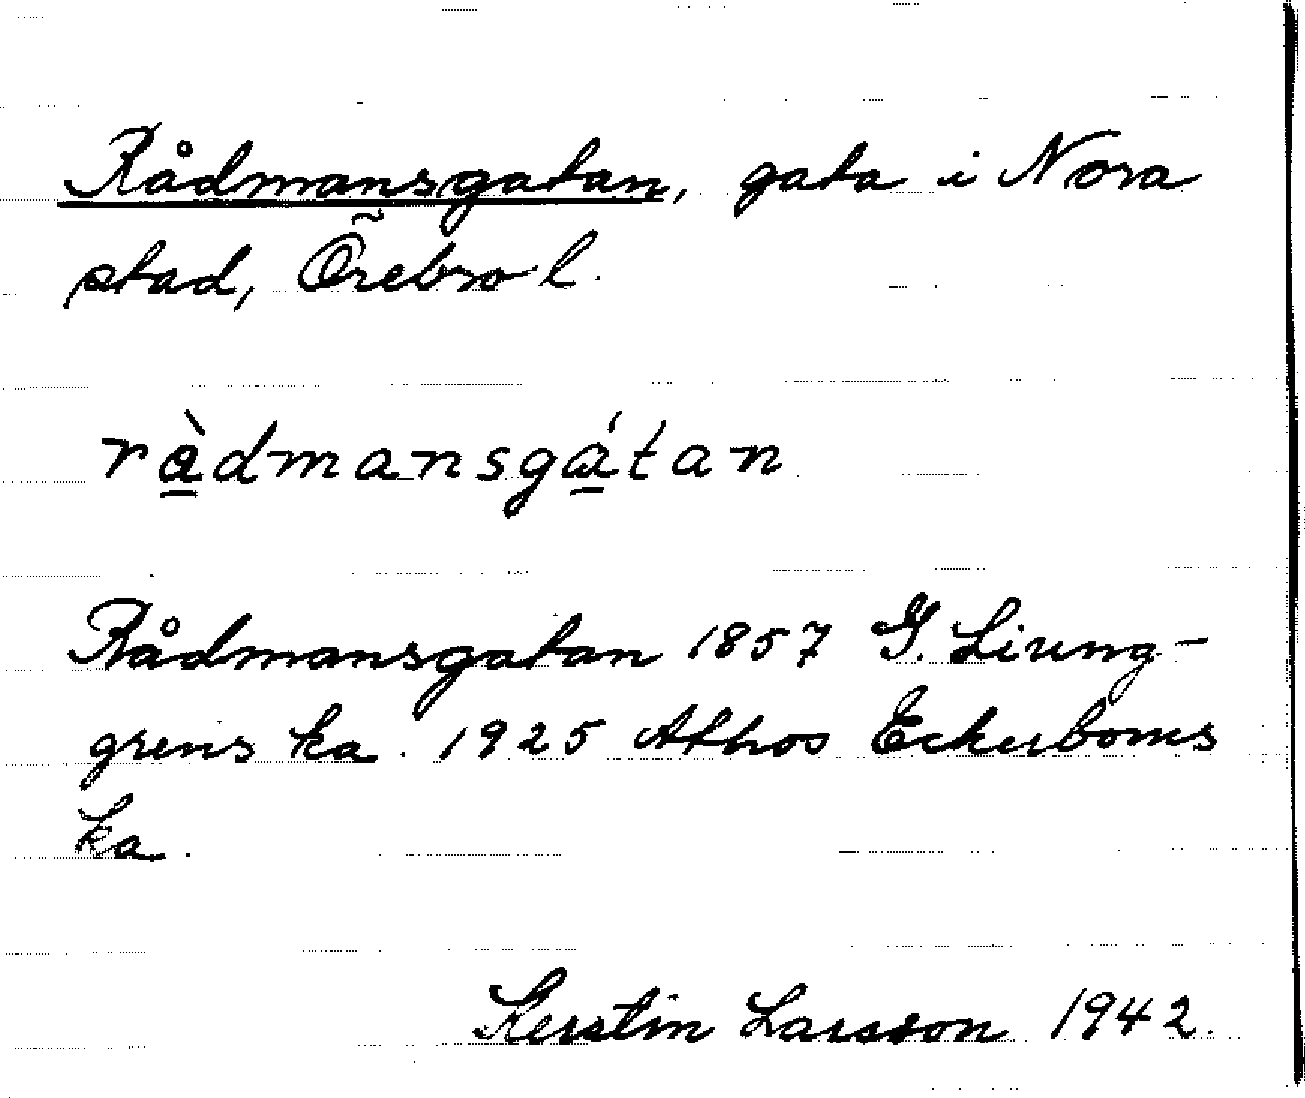 Rådmansgatan, gata i Nora
stad, Örebro l.
ràdmansgátan
Rådmansgatan 1857 G. Ljung-
grens ka. 1925 Athos Eckerboms
ka.
Kerstin Larsson 1942.